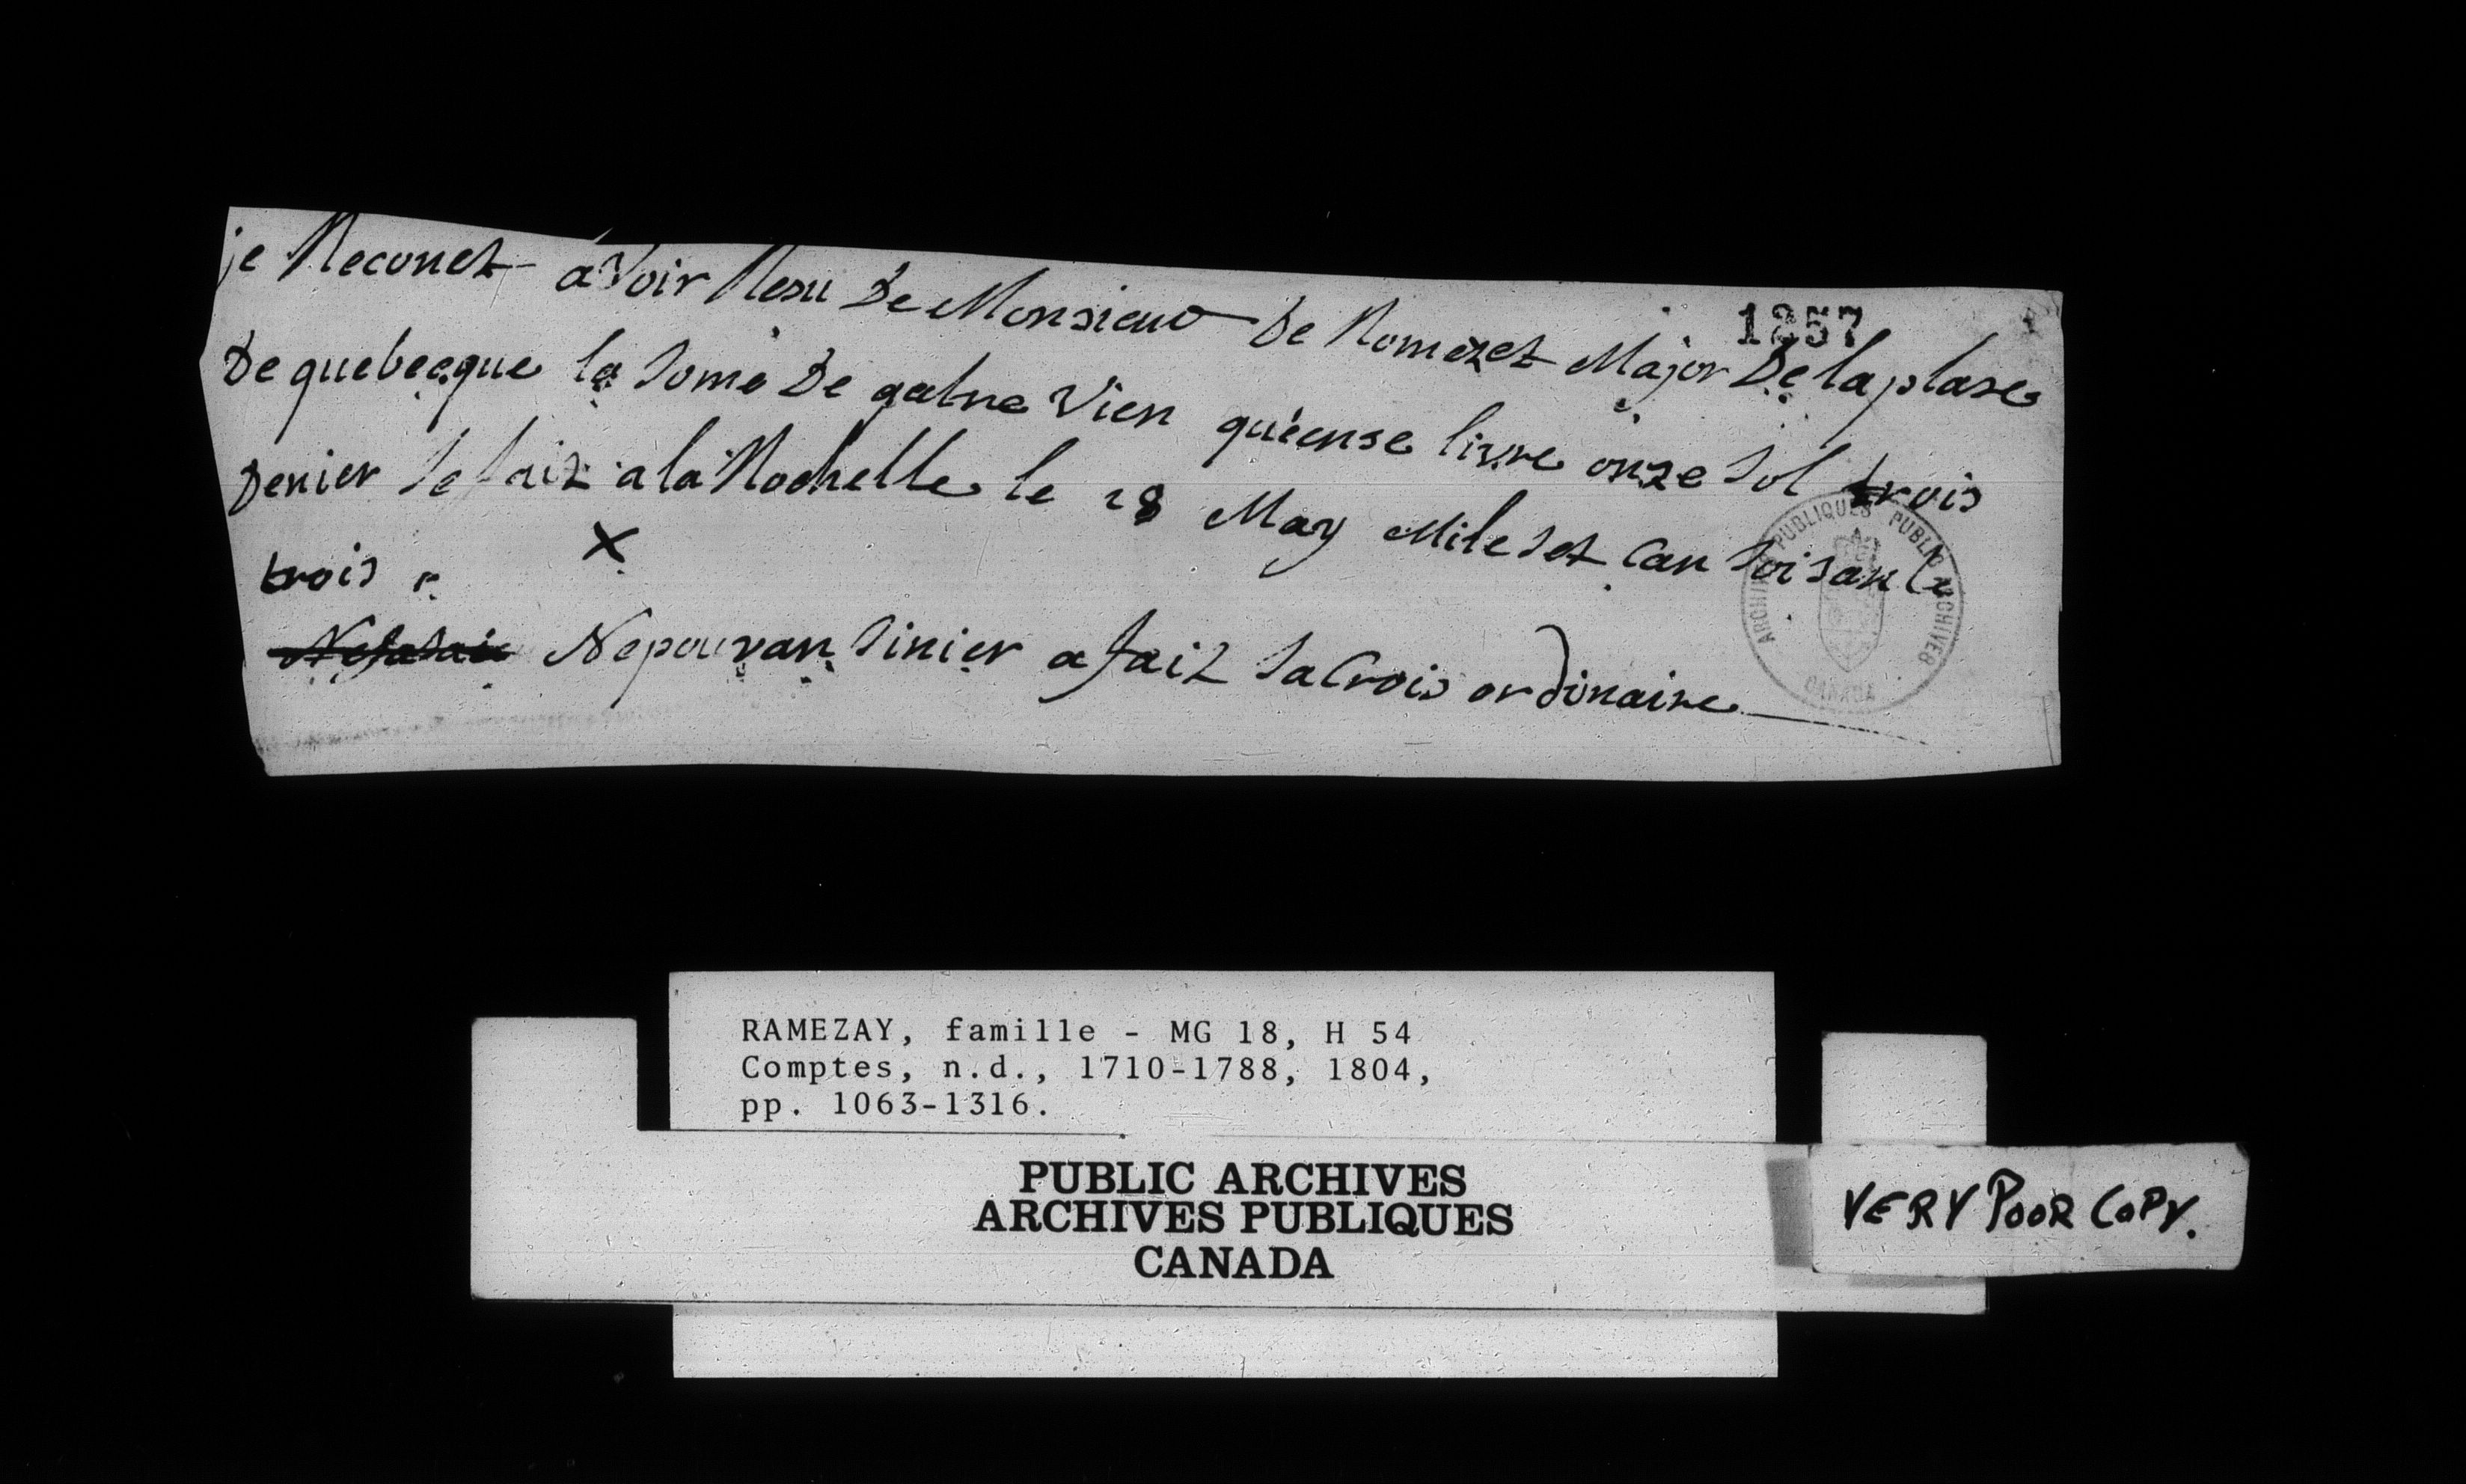 je Reconet avoir Resu De Monsieur De Romezet Major De la plase
1257
De quebecque la some De qatre Vien quiense livre onze sol trois
Denier se faiz a la Rochelle le 28 May Mile set Can soisante
trois
X
Nepouvan sinier a faiz sa Crois ordinaire
ARCHIVES PUBLIQUES PUBLIC ARCHIVES
CANADA
RAMEZAY, famille - MG 18, H 54
Comptes, n.d., 1710-1788, 1804,
pp. 1063-1316.
PUBLIC ARCHIVES
ARCHIVES PUBLIQUES
CANADA
VERY POOR COPY.